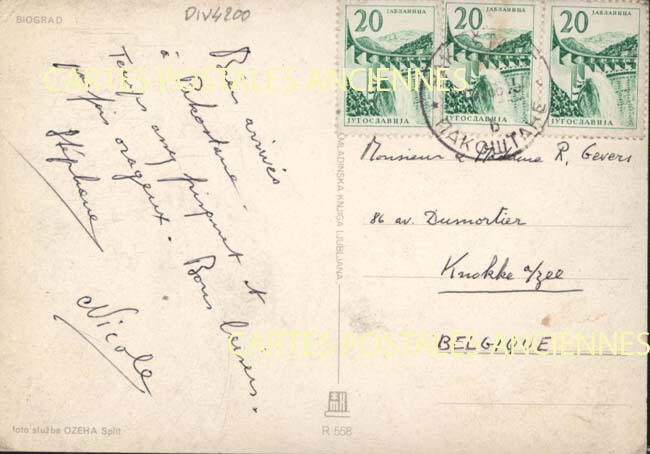 BIOGRAD
DIV4200
Bien arrivés
à Pakostane.
Temps assez et
parfois orageux. Bons baisers.
Stéphane
Nicole
20 ЈАБЛАНИЦА
ЈУГОСЛАВИЈА
20 ЈАБЛАНИЦА
ЈУГОСЛАВИЈА
20 ЈАБЛАНИЦА
ЈУГОСЛАВИЈА
ПАКОШТАНЕ
CARTES POSTALES ANCIENNES
MLADINSKA KNJIGA LJUBLJANA
Monsieur & Madame R. Gevers
86 av. Dumortier
Knokke a/zee
BELGIQUE
CARTES POSTALES ANCIENNES
foto služba OZEHA Split
R 558